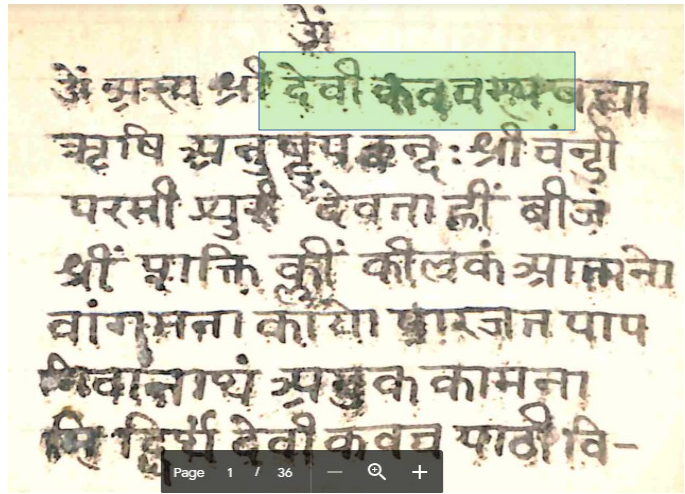 ॐ
ॐ अस्य श्री देवी कवचस्य ब्रह्मा
ऋषि अनुष्टुप छन्दः श्री चंन्डी
परमी श्वरी देवता ह्रीं बीजं
श्रीं शक्ति क्लीं कीलकं आत्मनो
वांगमना काया पारजत पाप
अमुक कामना
देवी कवच पाठी वि-
Page 1 / 36